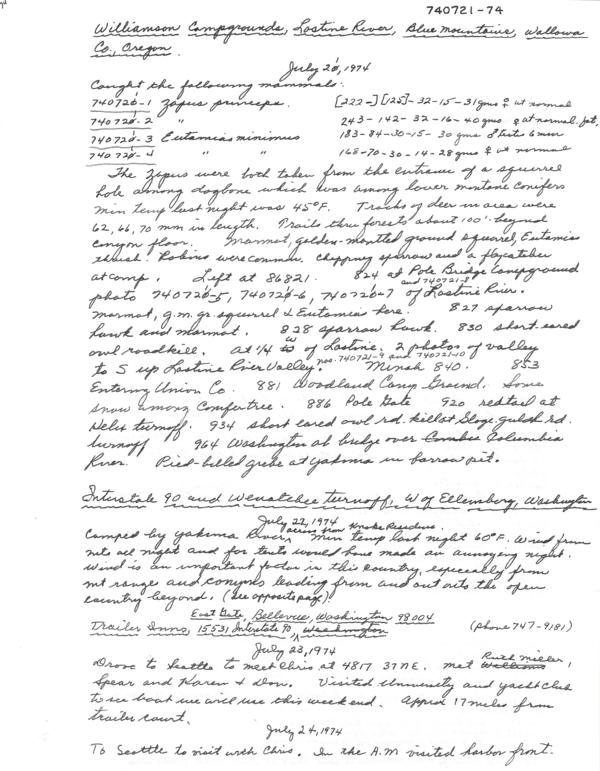 740721-74
Williamson Campgrounds, Lostine River, Blue Mountains, Wallowa
Co., Oregon.
July 20, 1974
Caught the following mammals:
740720-1 Zapus princeps. [222-] [125]-32-15-31gms ♀ ut normal
740720-2 " 243-142-32-16-40gms ♀ ut normal. fat,
740720-3 Eutamias minimus 183-84-30-15-30 gms ♂ tests 6mm
740720-4 " " 168-70-30-14-28gms ♀ ut normal
The Zapus were both taken from the entrance of a squirrel
hole among dogbone which was among lower montane conifers
Min temp last night was 45°F. Tracks of deer in area were
62, 66, 70 mm in length. Trails thru forests about 100' beyond
canyon floor. Marmot, golden-mantled ground squirrel, Eutamias
thrush. Robins were common. Chipping sparrow and a flycatcher
at camp. Left at 86821. 824 at Pole Bridge Campground
and 740721-8
photo 740720-5, 740720-6, 740720-7 of Lostine River.
marmot, g.m.gr. squirrel & Eutamias here. 827 sparrow
hawk and marmot. 828 sparrow hawk. 830 short-eared
owl roadkill. at 1/4 W of Lostine. 2 photos of valley
to S up Lostine River Valley. nos. 740721-9 and 740721-10 Minah 840. 853
Entering Union Co. 881 Woodland Camp Ground. Some
snow among Conifer tree. 886 Pole Gate 920 redtail at
Helix turnoff. 934 short eared owl rd. killat Sloge, gulch rd.
turnoff 964 Washington at bridge over Columbia
River. Pied-billed grebe at Yakima in barrow pit.
Interstate 90 and Wenatchee turnoff, W of Ellensberg, Washington
July 22, 1974
across from Residence.
Camped by Yakima River, Min temp last night 60°F. Wind from
mts all night and for tents would have made an annoying night.
Wind is an important factor in this country, especially from
mt ranges and canyons leading from and out onto the open
country beyond. (See opposite page).
East Gate, Bellevue, Washington 98004
Trailer Inns, 15531 Interstate 90, Washington (phone 747-9181)
July 23, 1974
Drove to Seattle to meet Chris at 4817 37 NE. met Ruth Miller,
Spear and Karen & Don. Visited University and yacht club
to see boat we will use this weekend. Approx 17 miles from
trailer court.
July 24, 1974
To Seattle to visit with Chris. In the A.M visited harbor front.